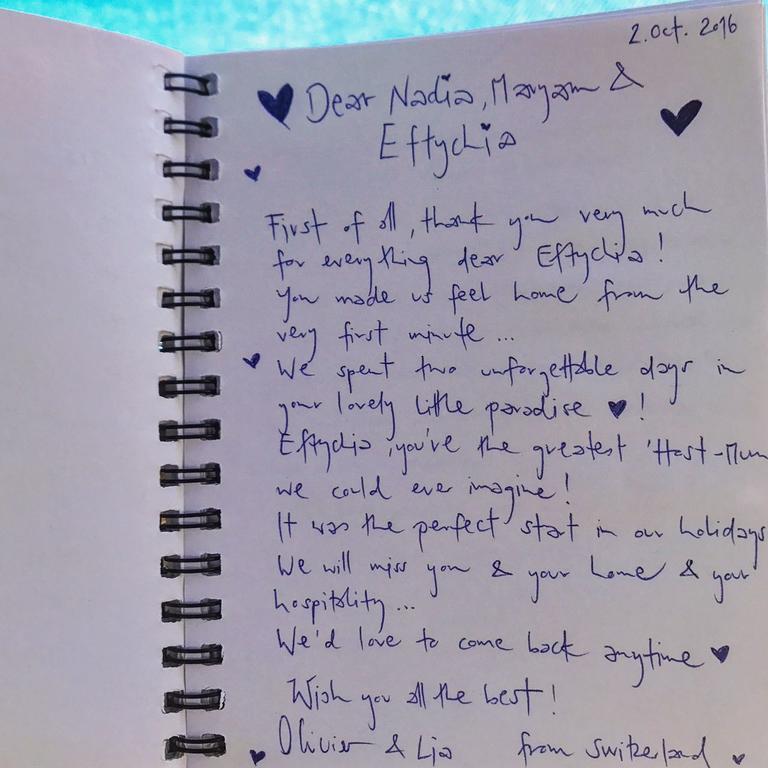 2. Oct. 2016
♥ Dear Nadia, Maryam & ♥
Eftychia
First of all, thank you very much
for everything dear Eftychia!
You made us feel home from the
very first minute ...
♥ We spent two unforgettable days in
your lovely little paradise ♥!
Eftychia, you've the greatest 'Host-Mum
we could ever imagine!
It was the perfect start in our holidays
We will miss you & your home & your
hospitality ...
We'd love to come back anytime ♥
Wish you all the best!
♥ Olivier & Lia from Switzerland ♥